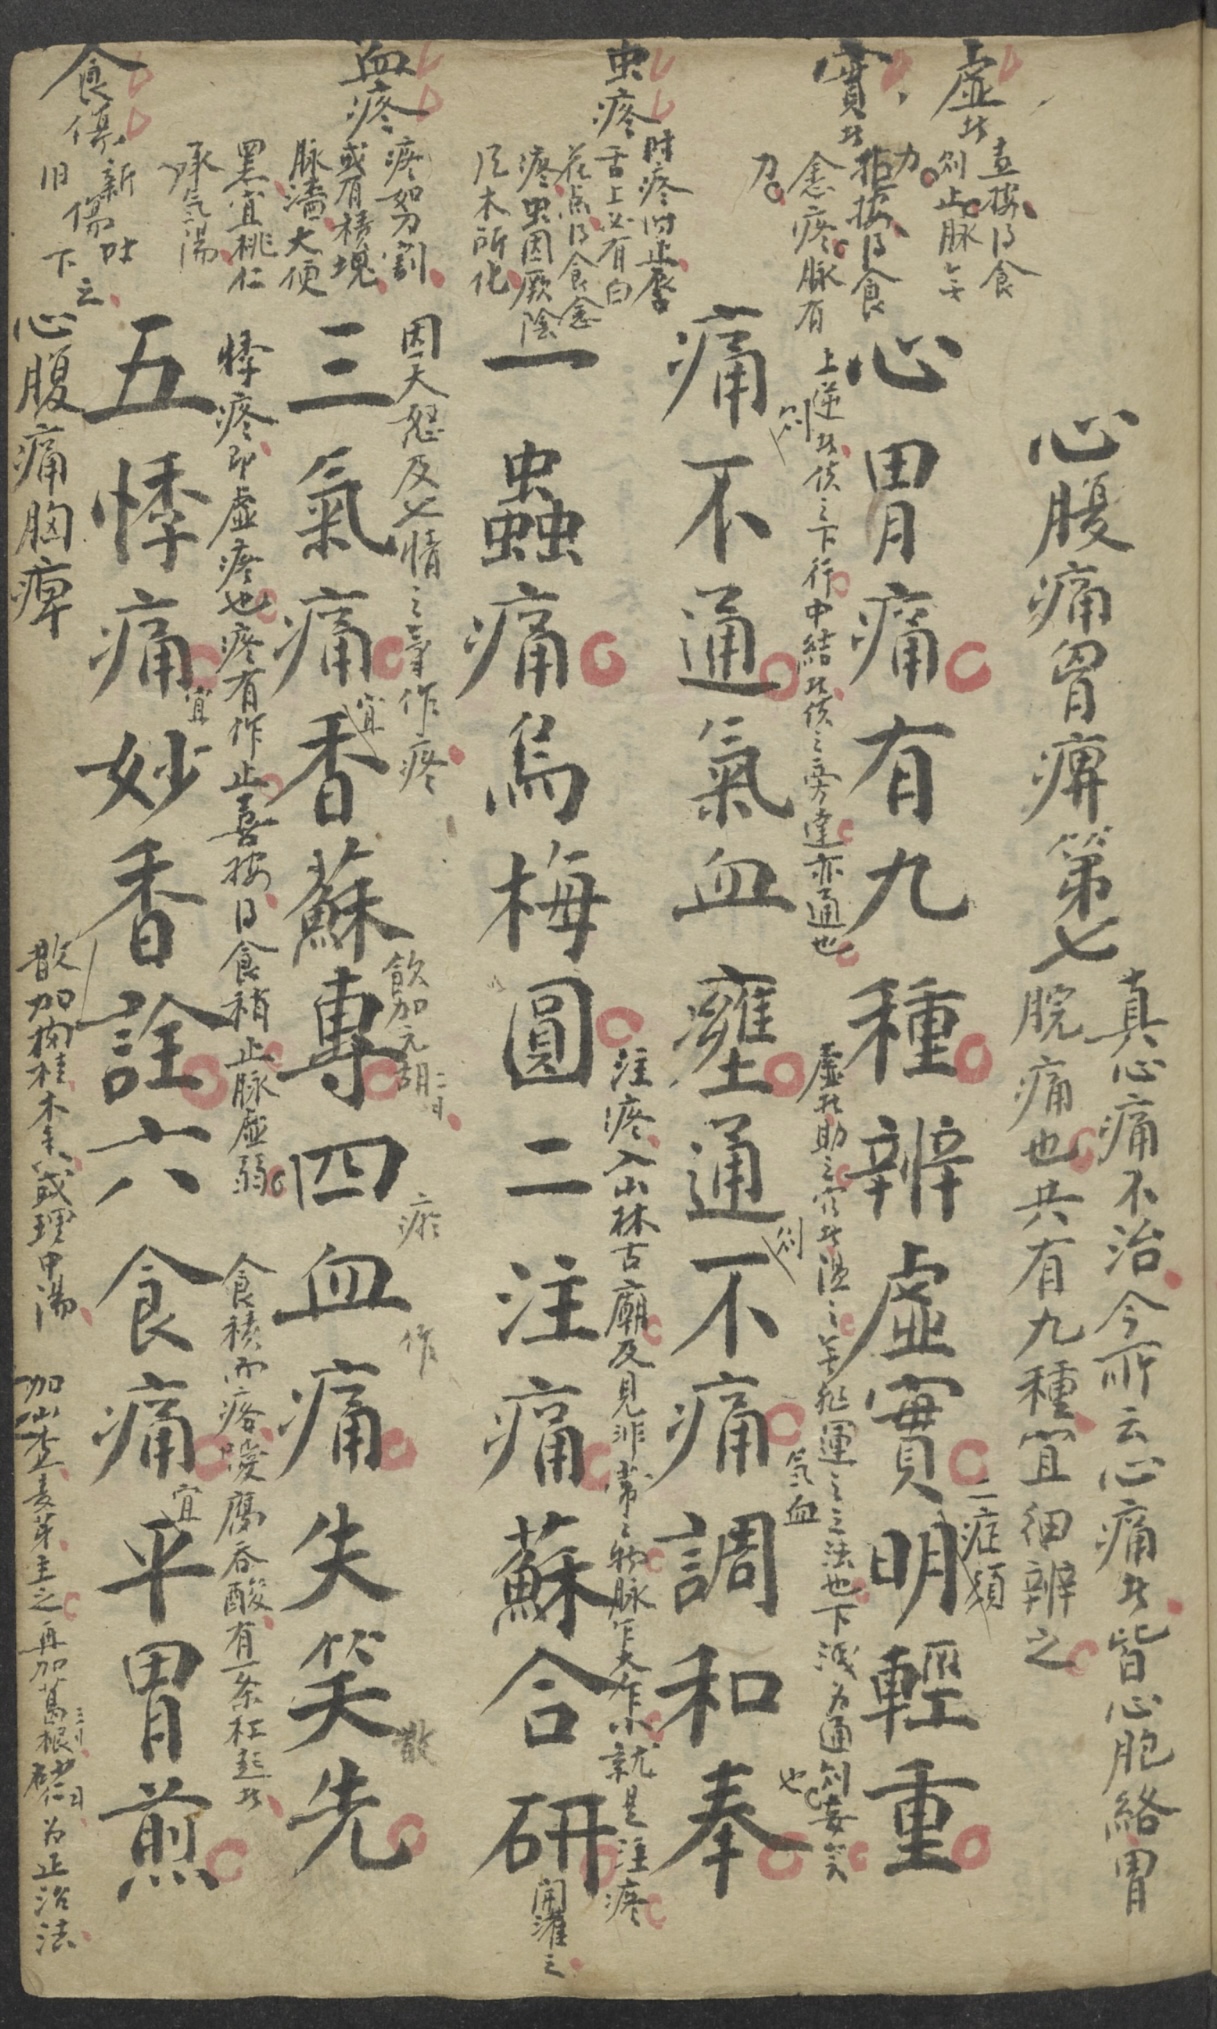 心腹痛胃痹第七
真心痛不治今所云心痛者皆心胞絡胃
脘痛也共有九種宜細辨之
虛者
喜按得食
則止脈無
力
實者
拒按得食
愈疼脈有
力
心胃痛有九種辨虛實明輕重
二症類
上逆者使之下行中結者使之旁達亦通也
虛者助之
氣血
痛不通氣血壅通不痛調和奉
則
則
也
虫疼
時疼時止唇
舌上必有白
花点得食愈
疼虫因厥陰
風木所化
一蟲痛烏梅圓二注痛蘇合研
注疼入山林古廟及見非常之物脈乍大乍小就是注疼
開灌之
血疼
疼如刀割
或有積塊
脈濇大便
黑宜桃仁
承氣湯
因大怒及七情之事作疼
三氣痛香蘇專四血痛失笑先
宜
飲加元胡二錢
瘀
作
散
食傷
新傷吐
旧傷下之
悸疼即虛疼也疼有作止喜按得食稍止脈虛弱
食積而疼噯腐吞酸有一条杠起者
五悸痛妙香詮六食痛平胃煎
宜
宜
散加肉桂木香或理中湯
加山查麦芽主之再加葛根三錢
為正治法
心腹痛胸痹